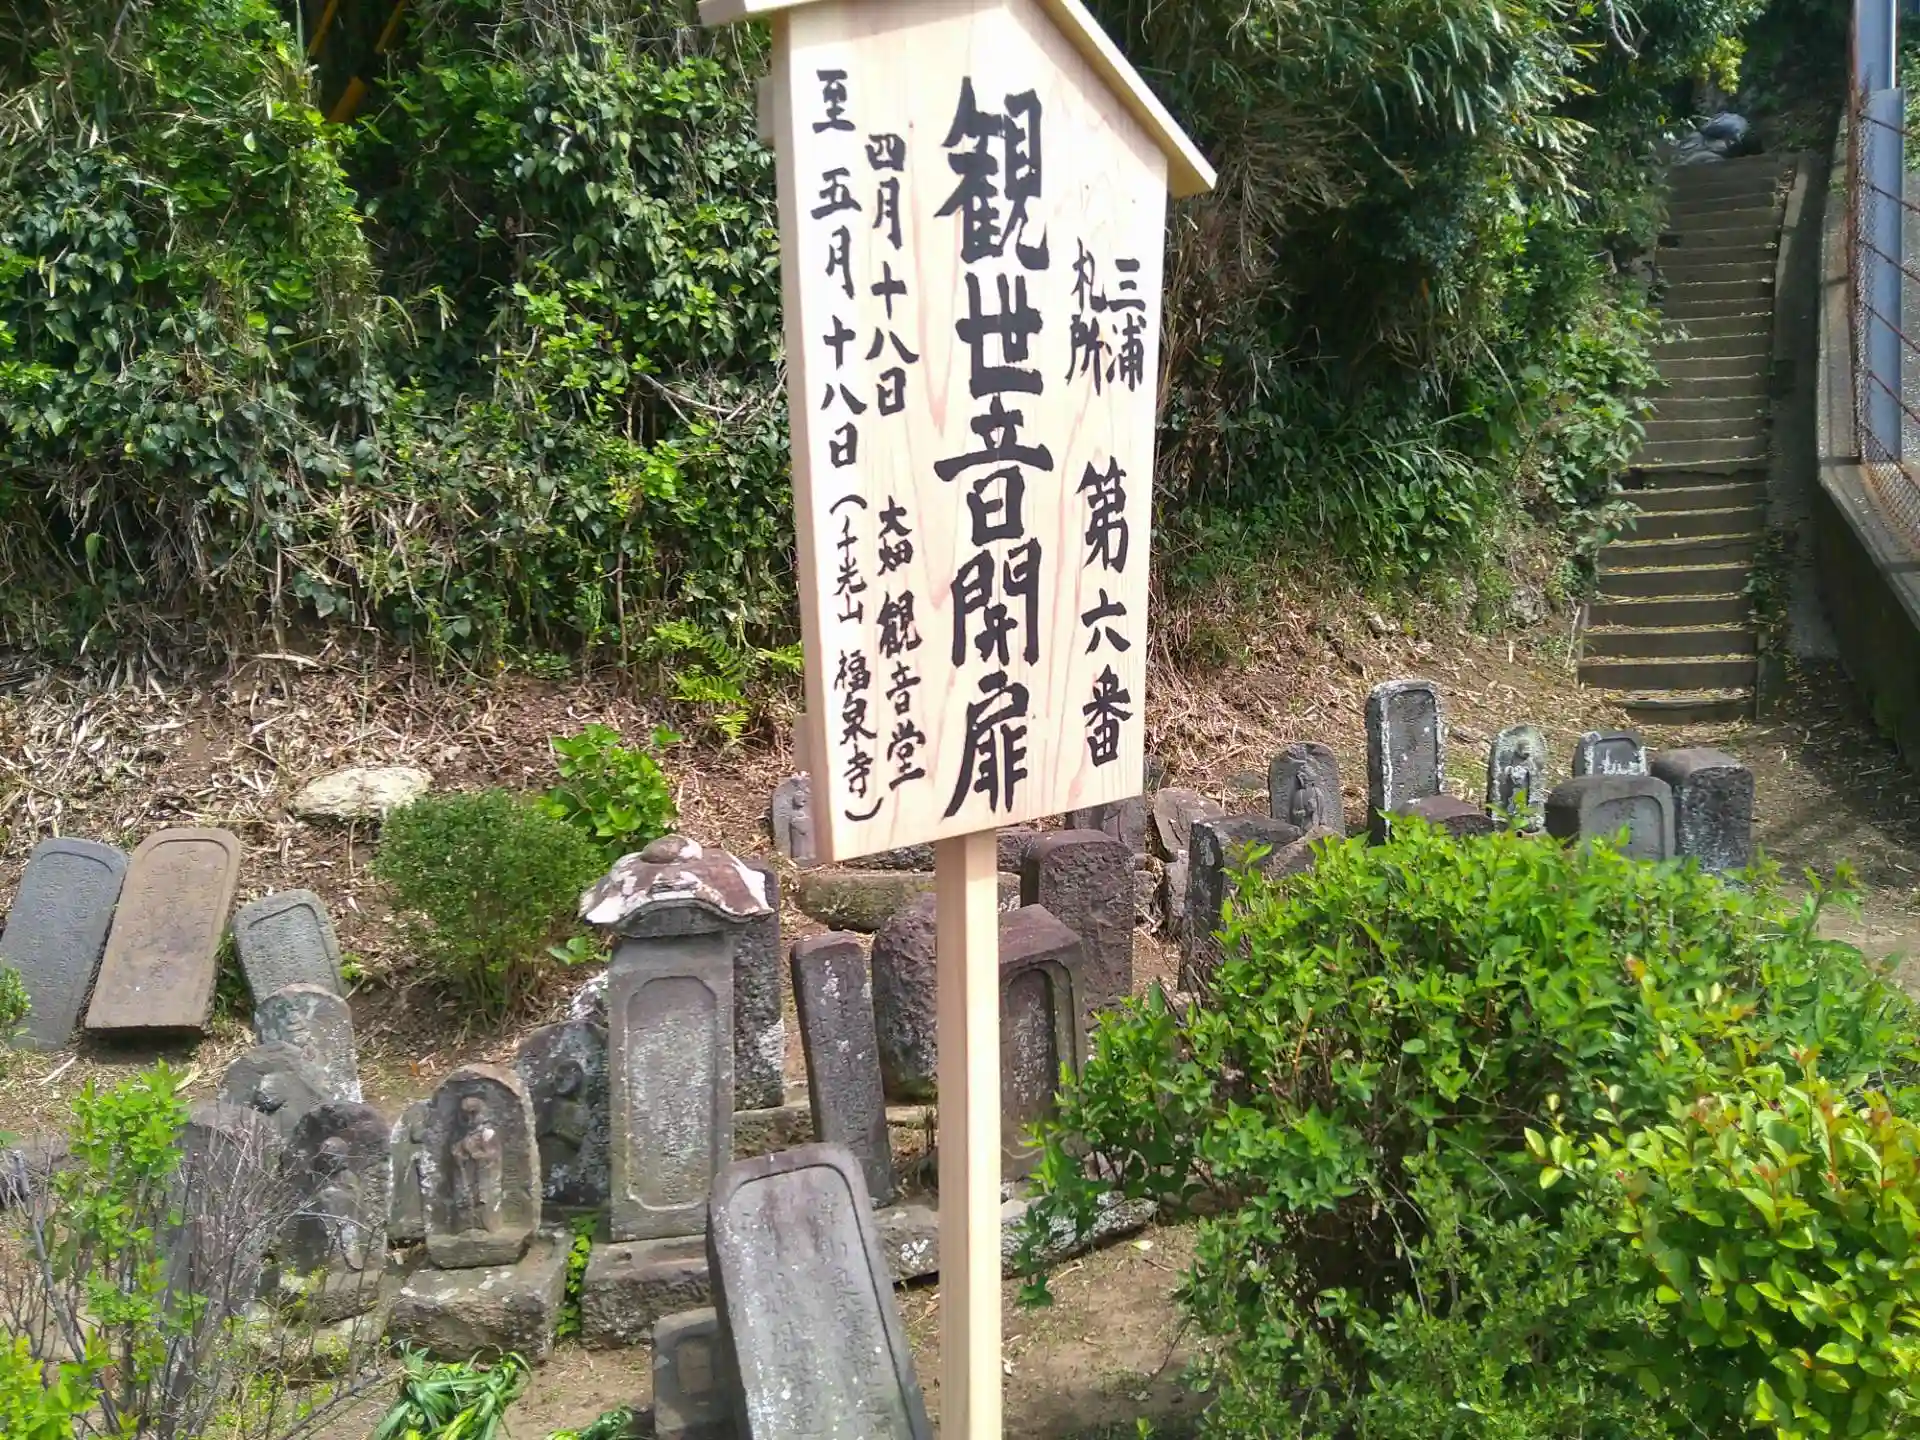 三浦
札所
第六番
観世音開扉
四月十八日
大畑 観音堂
至 五月十八日
(千光山 福泉寺)